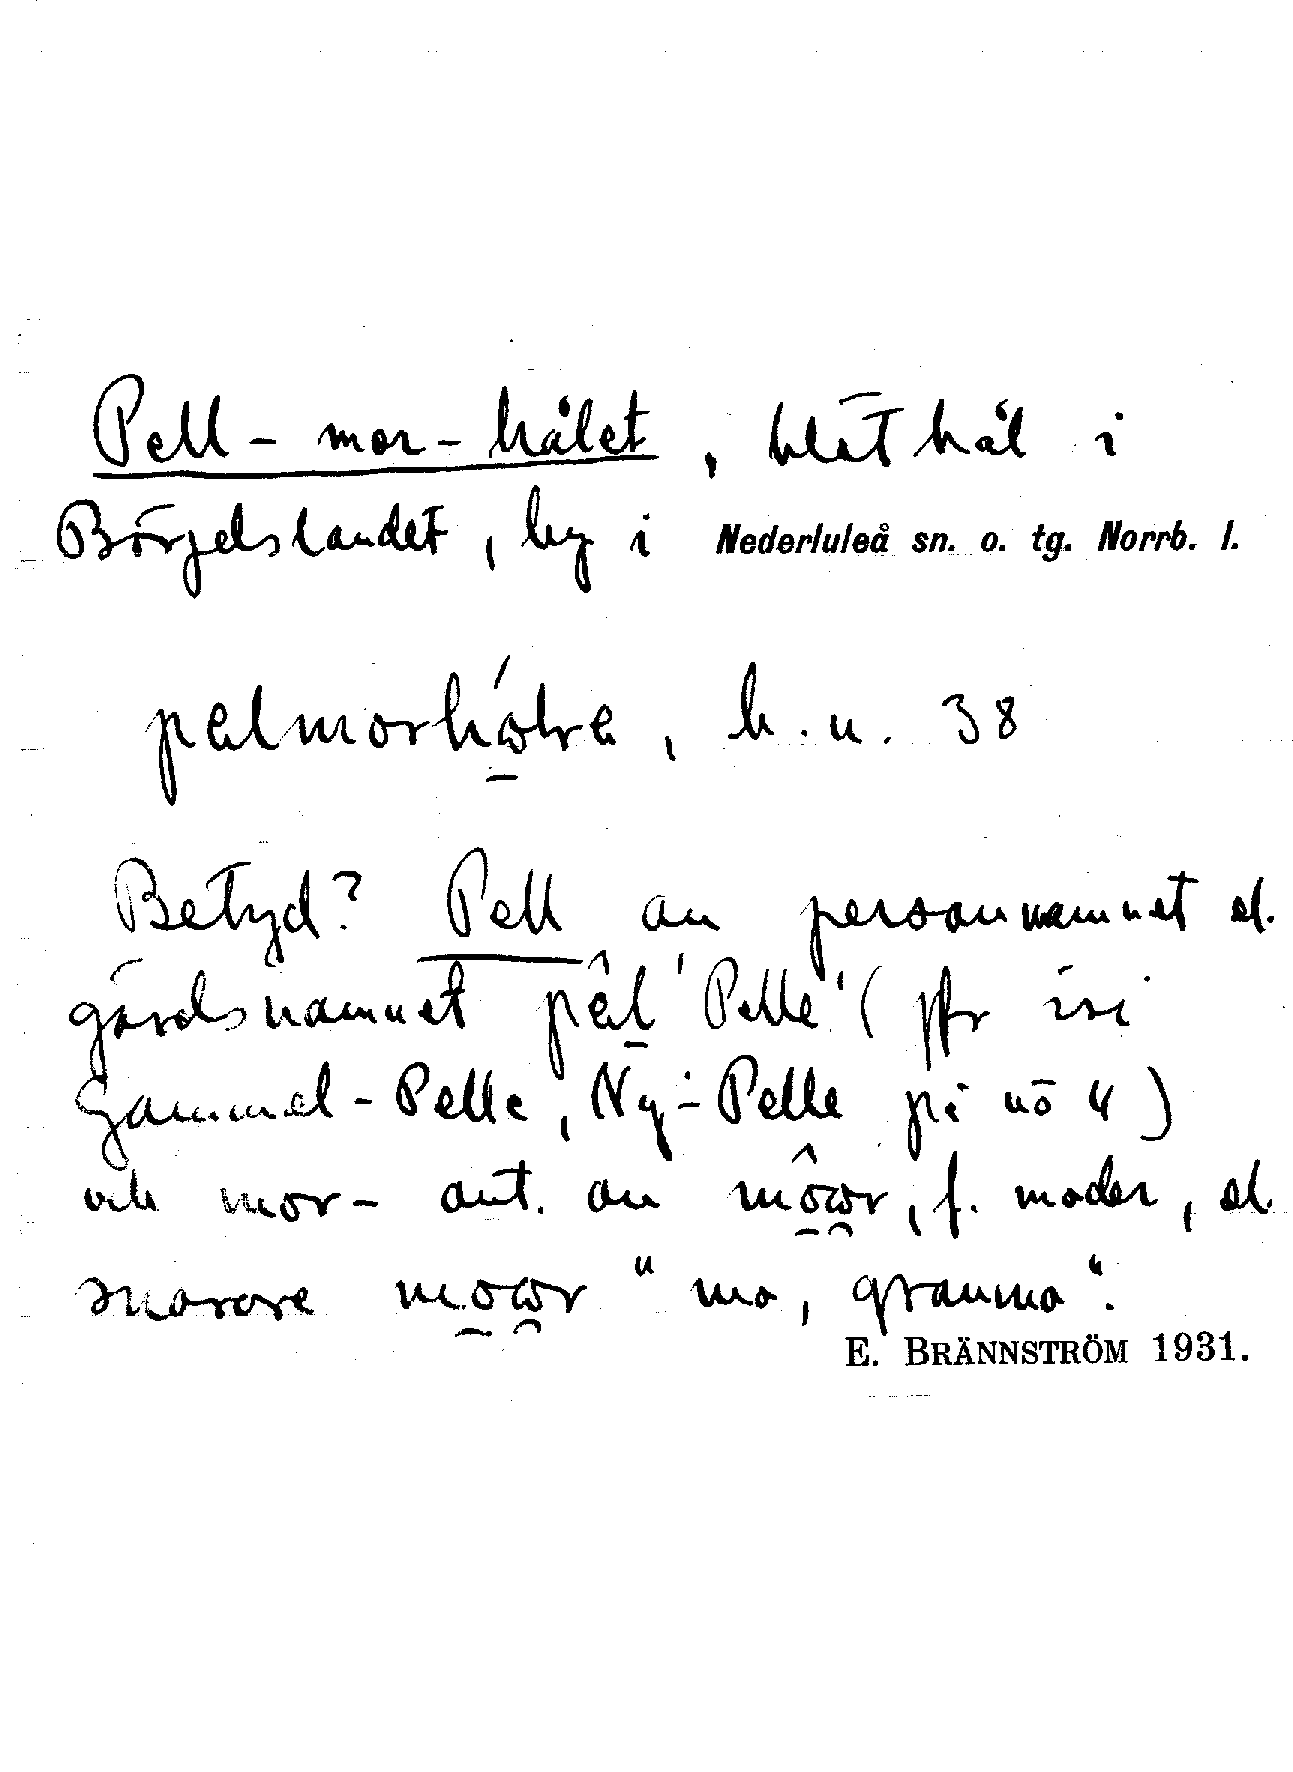 Pell-mor-hålet, blöthål i
Börjelslandet, by i Nederluleå sn. o. tg. Norrb. l.
pelmorhώ̱lre, b.u. 38
Betyd? Pell an personnamnet el.
gårdsnamnet pêl̠ 'Pelle' (jfr
Gammel-Pelle, Ny-Pelle på nö 4)
och mor- ant. an môωr, f. moder, el.
snarare moωr "mo, granmo".
E. BRÄNNSTRÖM 1931.